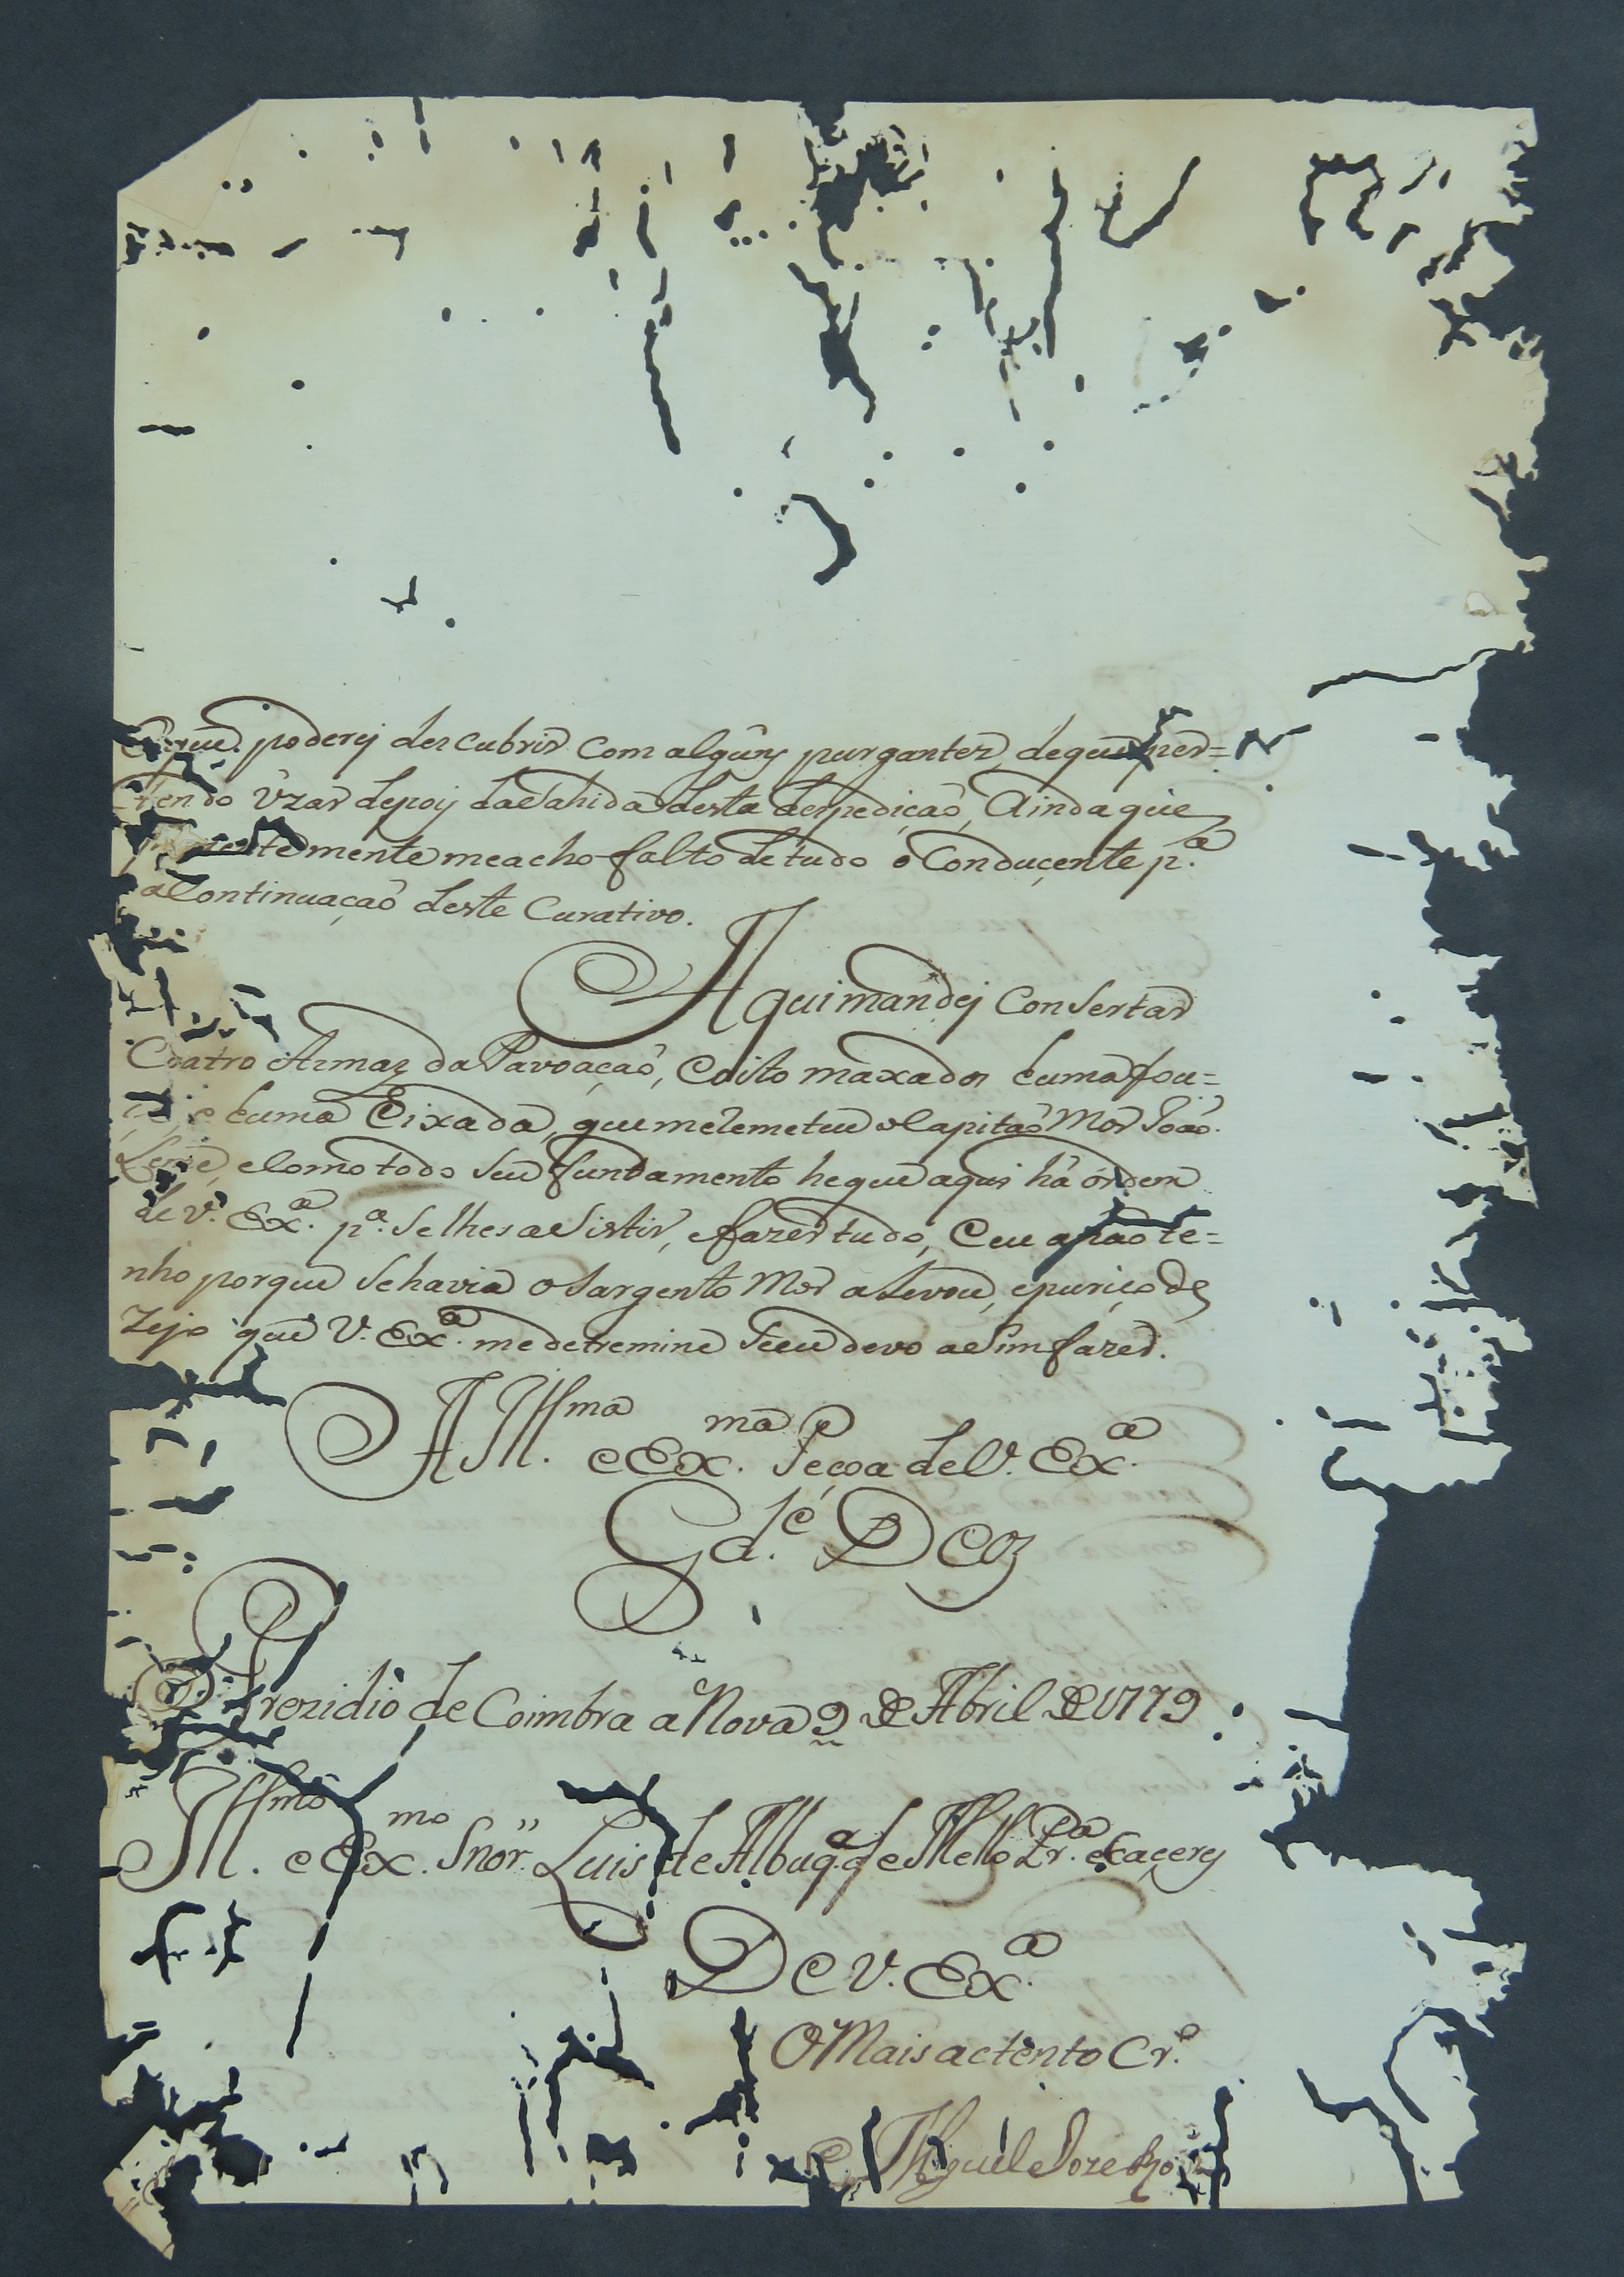 que poderej descubrir com algũns purgantes, de que per=
tendo Uzar depoij da Sahida desta despediçaõ, Ainda que
mente me acho falto de tudo o Conduçente p.ª
a Continuaçaõ deste Curativo.
Aqui mandej Consertar
Coatro Armaz da Pavoaçaõ, e oito maxados e uma fou=
e huma Eixada, que me Remeteu o Capitaõ Mor Joaõ
Leme, e Como todo seu fundamento he que aqui há órdem
de V. Ex.ª p.ª se lhes aSistir, e fazer tudo, e eu a naõ te=
nho porque se havia o Sargento Mor a Levou, e puriço de
zejo que V. Ex.ª me detremine se eu devo aSim fazer.
A Ill.ma e Ex.ma Peçoa de V. Ex.ª
G.de Deoz
Prezidio de Coimbra a Nova 9 de Abril de 1779
Ill.mo e Ex.mo Snor. Luis de Albuq.e de Mello Pr.ª e Caçerez
De V. Ex.ª
O Mais actento Cr.º
Miguel Joze